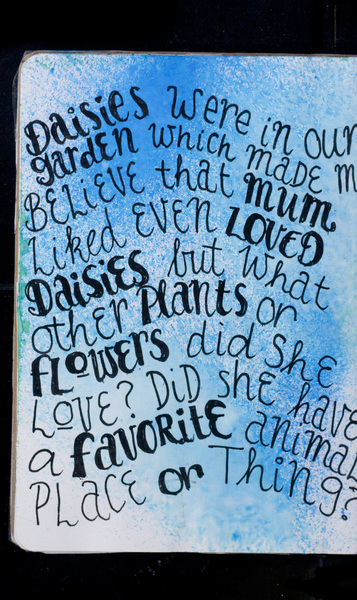 Daisies were in our
garden which made m
Believe that mum
Liked even loved
Daisies but what
other plants or
flowers did she
Love? Did she have
a favorite animal
Place or Thing?